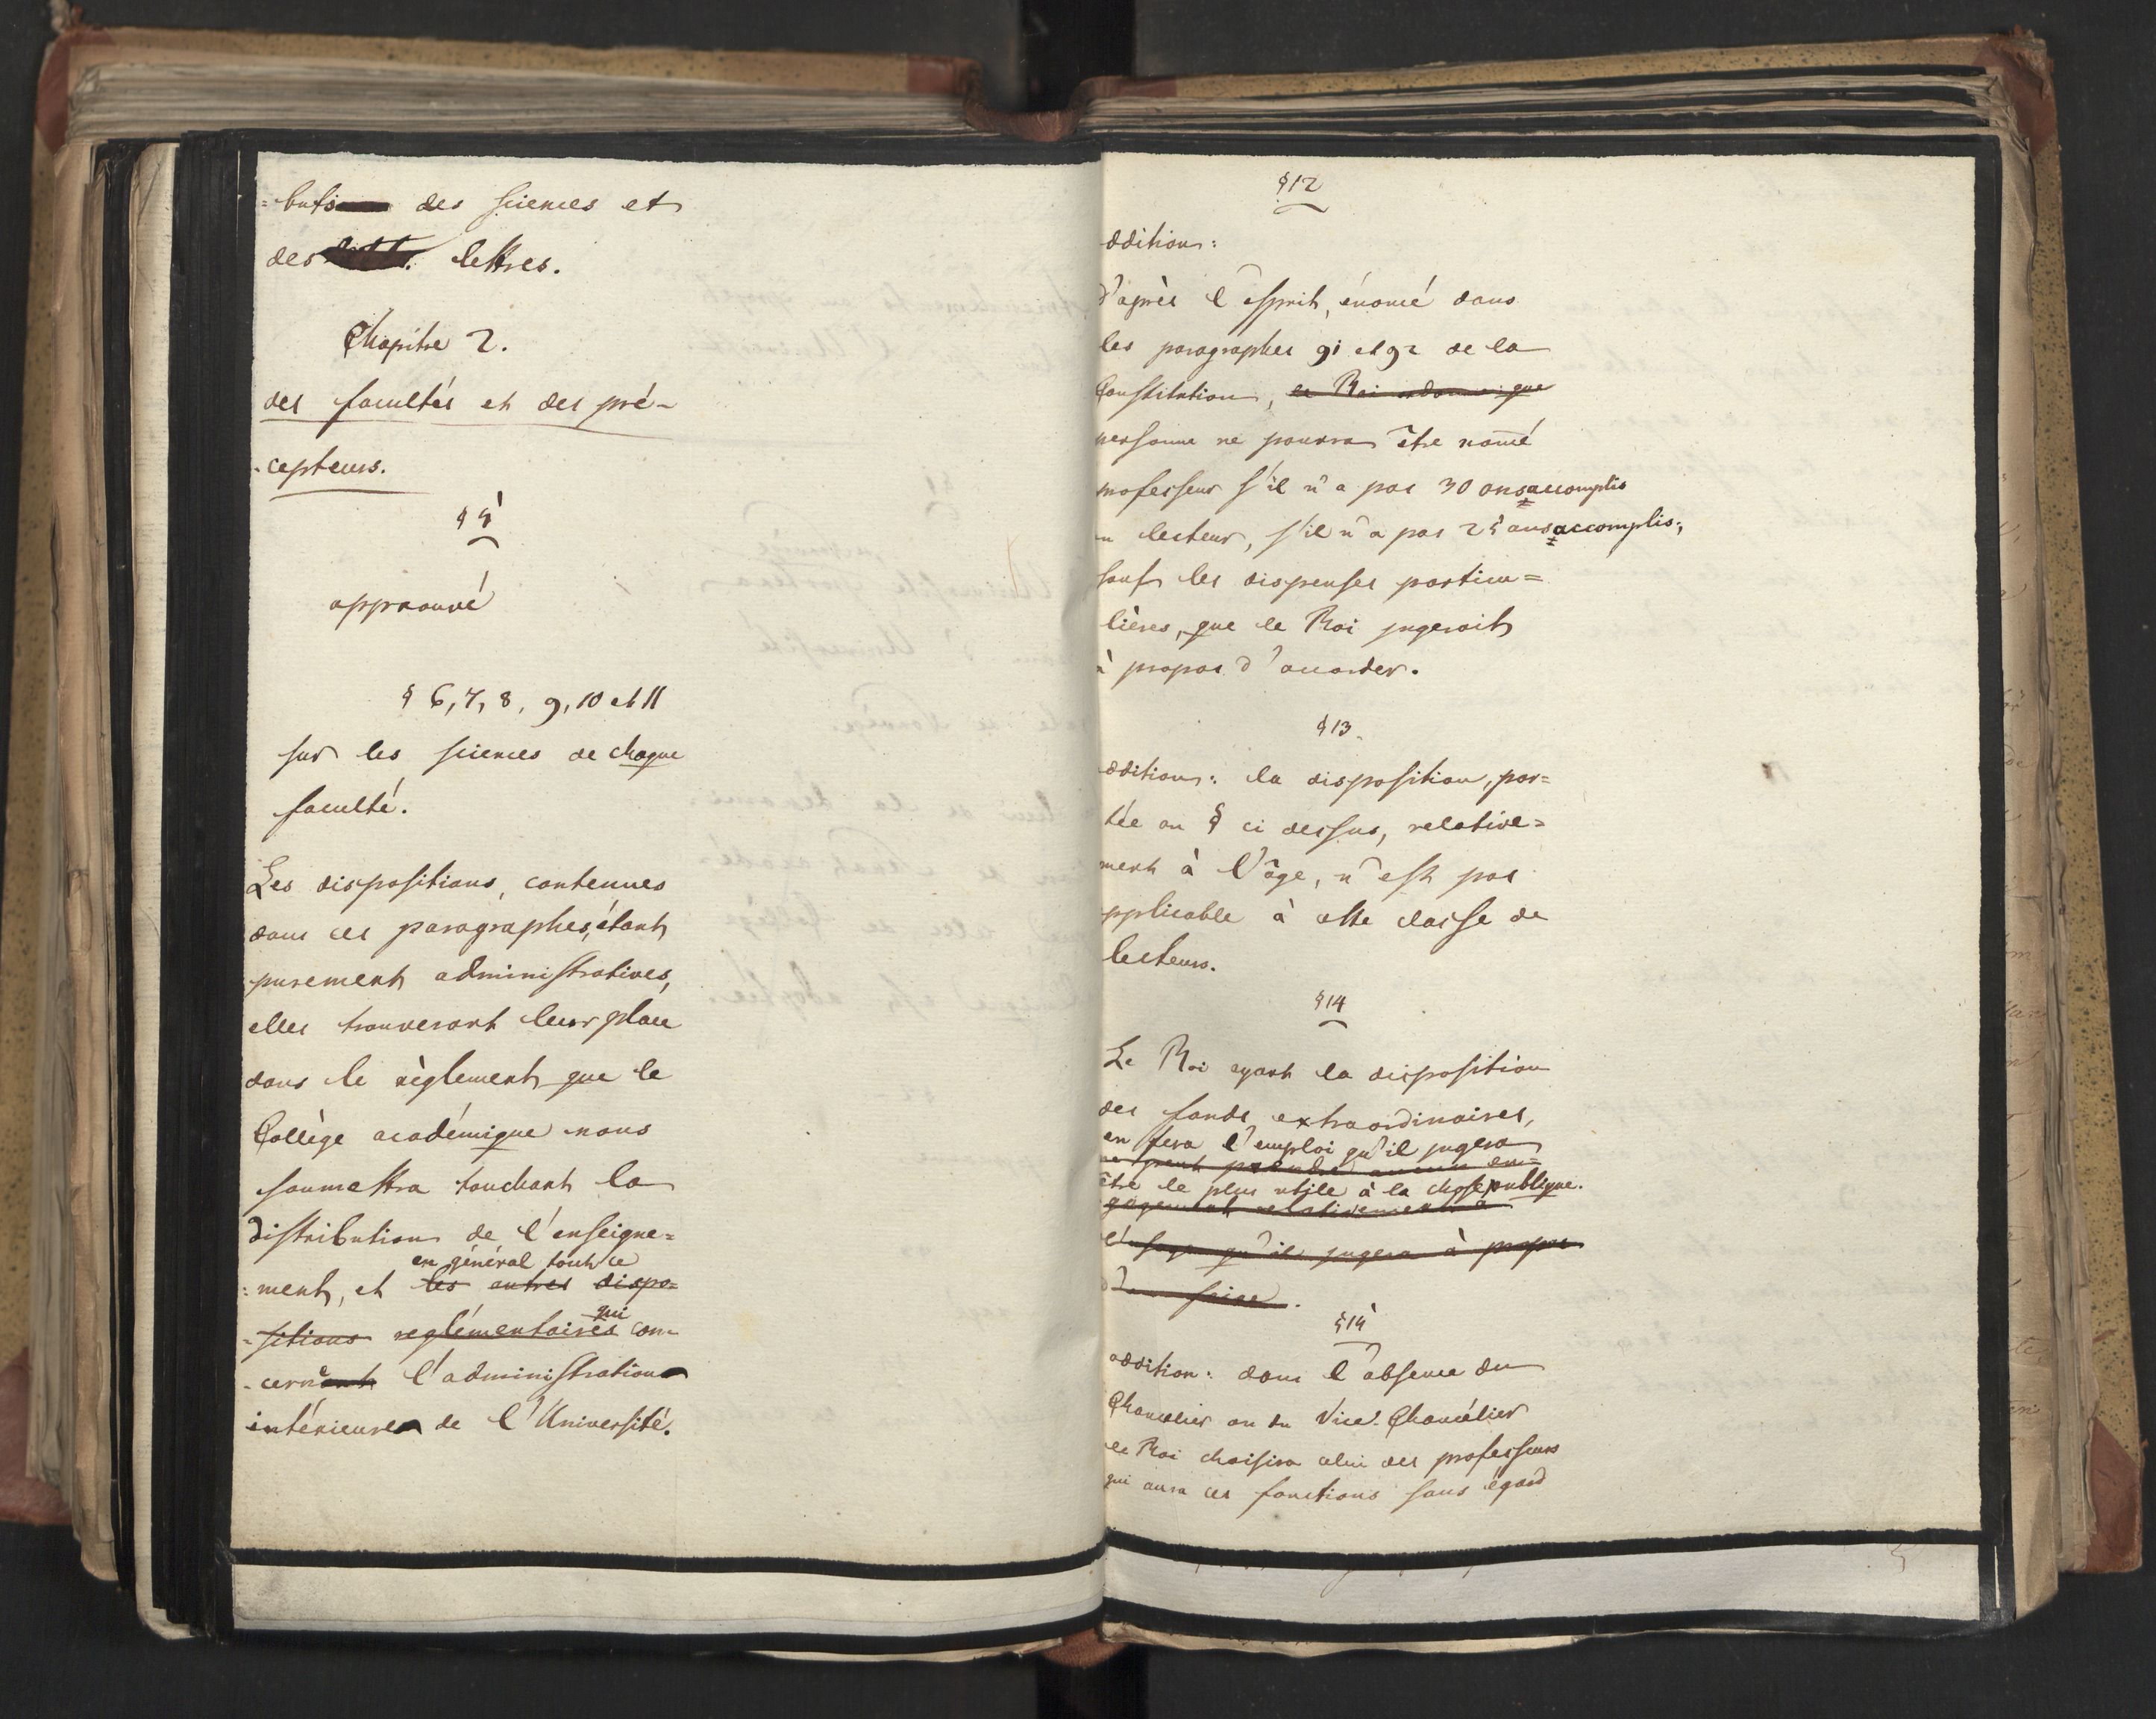 =butio des sciences et
des lettres.
Chapitre 2.
des facultés et des pré-
-cepteurs.
§ 5
approuvé
§ 6, 7, 8, 9, 10 et 11
sur les sciences de chaque
faculté.
Les dispositions, contenues
dans ces paragraphes, étant
purement administratives,
elles trouveront leur place
dans le règlement que le
Collège académique nous
soumettra touchant la
distribution de l'enseigne=
en général tout ce
:ment, et les autres dispo=
qui
=sitions reglémentaires con-
-cernant l'administration
intérieure de l'Université.
§12
ddition:
d'après l'esprit, énoncé dans
les paragraphes 91 et 92 de la
Constitution, le Roi ordonne que
personne ne pourra être nomé
professeur s'il n'a pas 30 ans accomplis
ou lecteur, s'il n'a pas 25 ans accomplis;
sauf les dispenses particu=
lières, que le Roi jugerait
à propos d'accorder.
§13.
ddition: la disposition, por=
tée au § ci dessus, relative=
ment à l'âge, n'est pas
pplicable à cette classe de
lecteurs.
§14
Le Roi ayant la disposition
des fonds extraordinaires,
en fera l'emploi qu'il jugera
ne peut prendre aucun en=
être le plus utile à la chose publique.
gagement relativement à
l'usage qu'il jugera à propos
d'en faire.
§15
addition: dans l'absence du
Chancelier ou du Vice-Chancélier
le Roi choisira celui des professeurs
qui aura ces fonctions sans égard